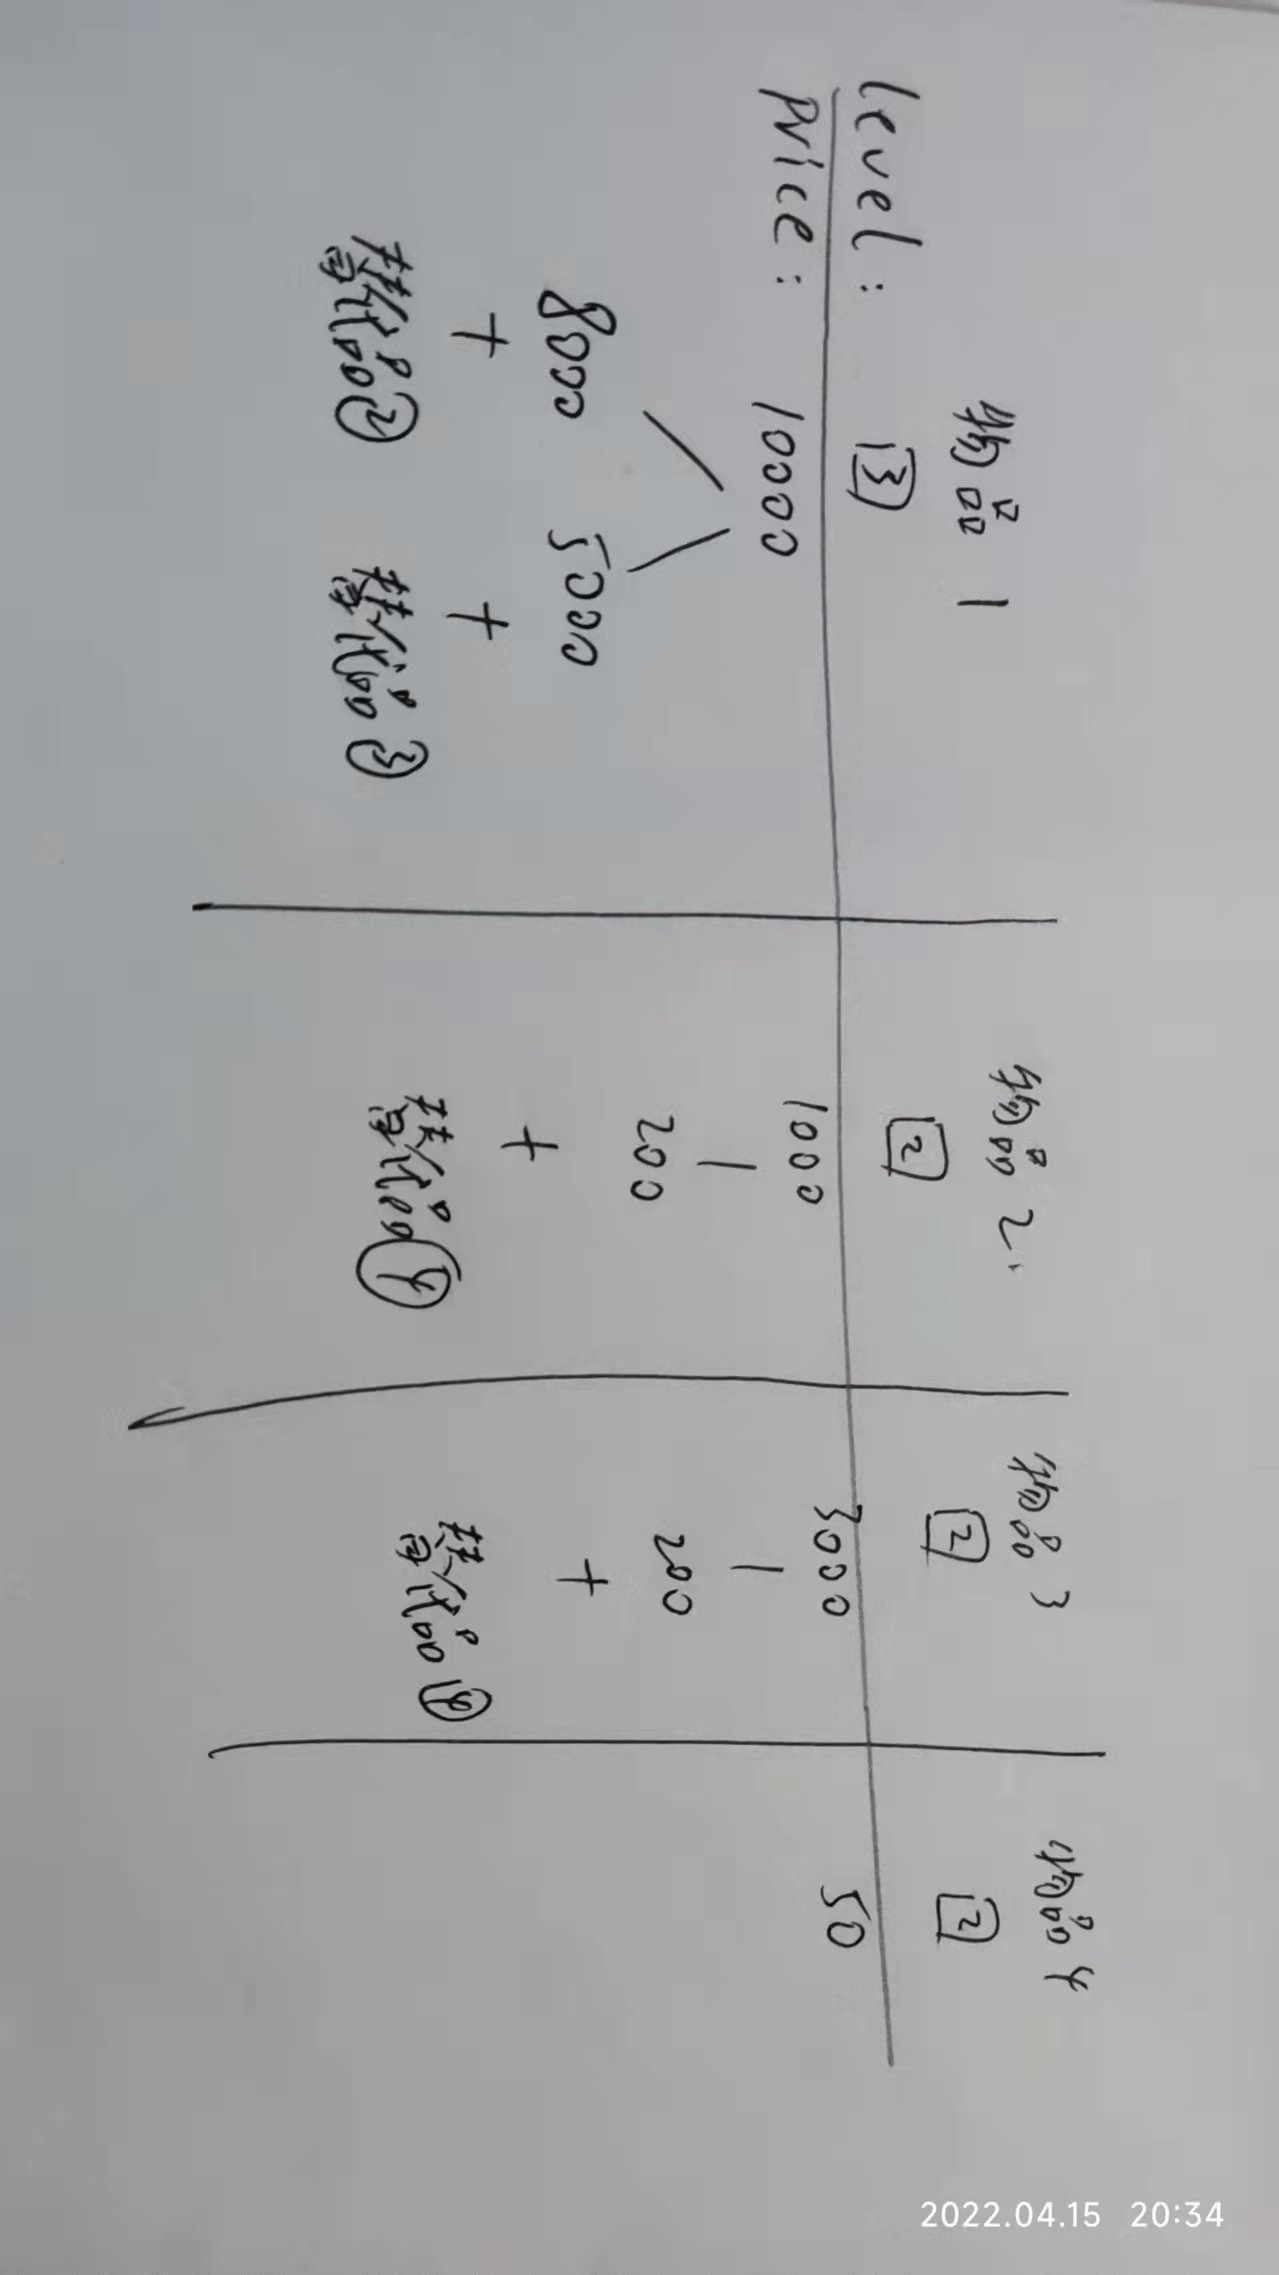 物品 1 物品 2. 物品 3 物品 4
level: 13 12 12 12
price: 10000 1000 3000 50
8000 5000 200 200
+ + + +
替代品② 替代品③ 替代品④ 替代品④
2022.04.15 20:34